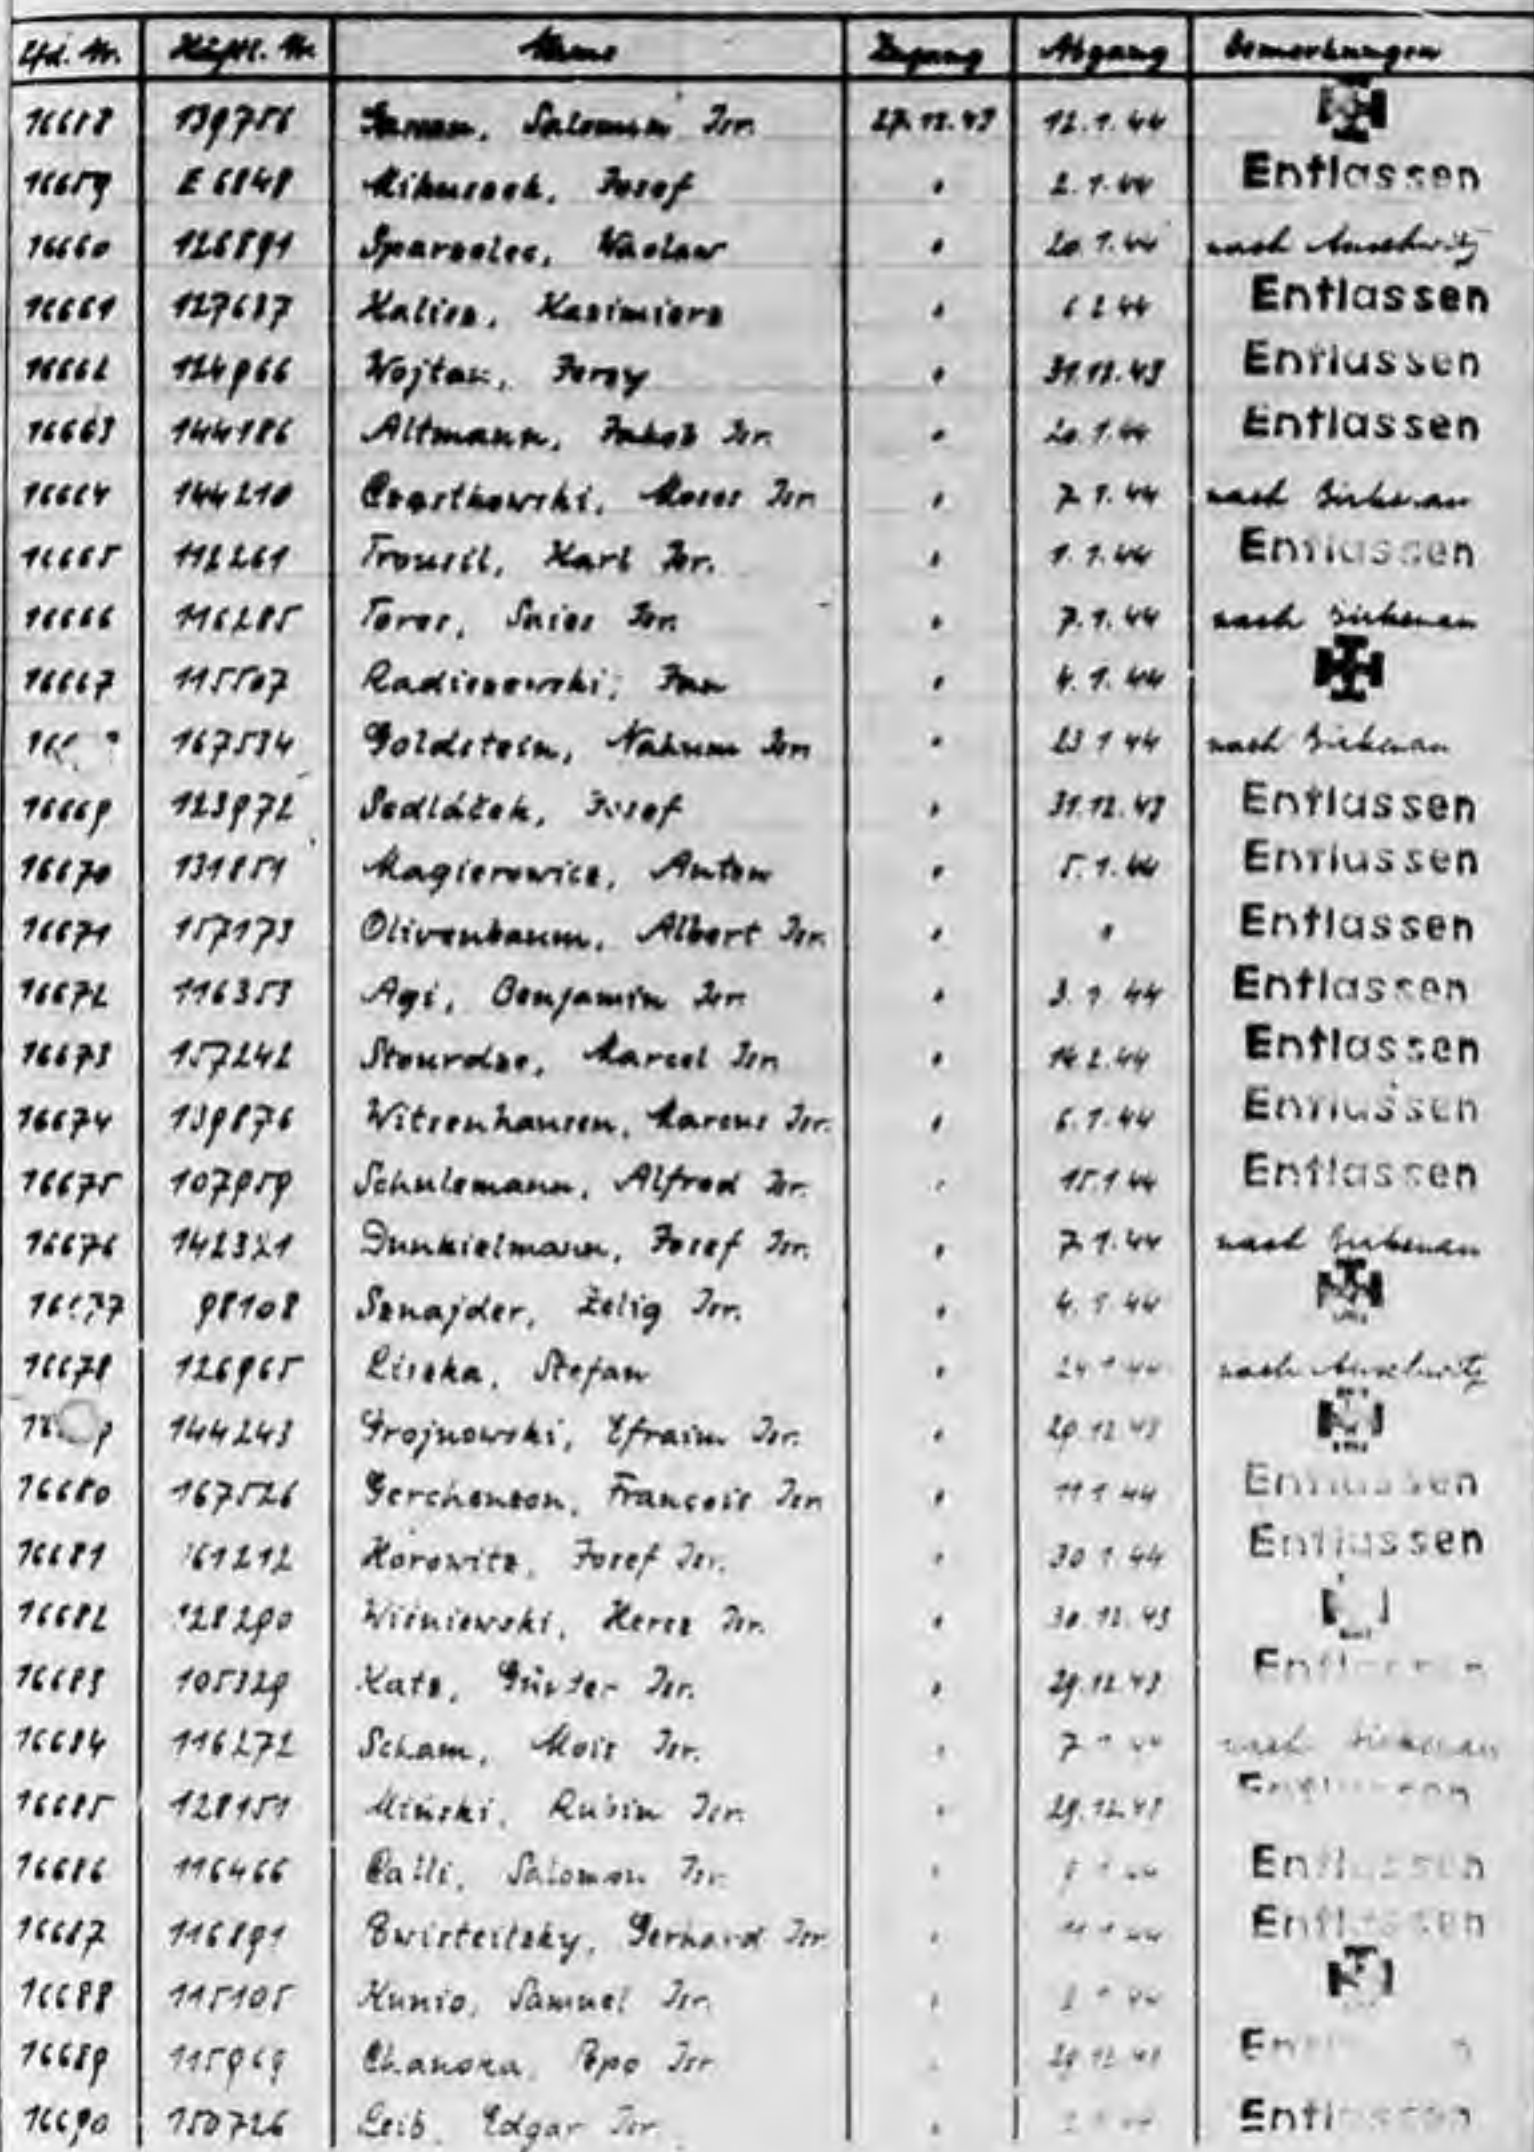 Lfd. Nr. Häftl. Nr. Name Zugang Abgang Bemerkungen
16658 139756 Salomon Isr. 27.12.43 12.1.44
16659 E 6848 Josef " 2.1.44 Entlassen
16660 126891 Waclaw " 20.1.44 nach Auschwitz
16661 127637 Kalisz, Kazimierz " 6 2 44 Entlassen
16662 124966 Jerzy " 31.12.43 Entlassen
16663 144186 Altmann, Jakob Isr. " 20.1.44 Entlassen
16664 144210 Czostkowski, Moses Isr " 7 1.44 nach Birkenau
16665 112261 Trousil, Karl Isr. " 1.1.44 Entlassen
16666 116285 Isr. " 7.1.44 nach Birkenau
16667 115507 Jan " 4.1.44
167534 Goldstein, Nahum Isr " 23 1 44 nach Birkenau
16669 123972 Sedláček, Josef " 31.12.43 Entlassen
16670 131851 Magierowicz, Anton " 5.1.44 Entlassen
16671 157173 Olivenbaum, Albert Isr. " " Entlassen
16672 116353 Agi, Benjamin Isr. " 3.1.44 Entlassen
16673 157242 Stourdze, Marcel Isr " 14.2.44 Entlassen
16674 139876 Witsenhausen, Marcus Isr. " 6.1.44 Entlassen
16675 107959 Schulemann, Alfred Isr. " 15.1 44 Entlassen
16676 142321 Dunkielmann, Josef Isr. " 7.1.44 nach Birkenau
16677 98108 Sznajder, Zelig Isr. " 4.1.44
16678 126965 Liszka, Stefan " 24 1 44 nach Auschwitz
144243 Grojnowski, Efraim Isr. " 29.12.43
16680 167526 Gerchenzon, François Isr " 11 1 44 Entlassen
16681 61212 Horowitz, Josef Isr. " 30 1.44 Entlassen
16682 128290 Wiśniewski, Hersz Isr. " 30.12.43
16683 105329 Katz, Günter Isr. " 29.12.43 Entlassen
16684 116272 Scham, Mois Isr. " 7 1 44 nach Birkenau
16685 128151 Miński, Rubin Isr. " 29.12.43 Entlassen
16686 116466 Calli, Salomon Isr. " Entlassen
16687 116891 Gerhard Isr " 11 1 44 Entlassen
16688 115105 Kunio, Samuel Isr. "
16689 115969 Chanoka, Pepo Isr " 29 12 43
16690 150726 Leib, Edgar Isr " Entlassen